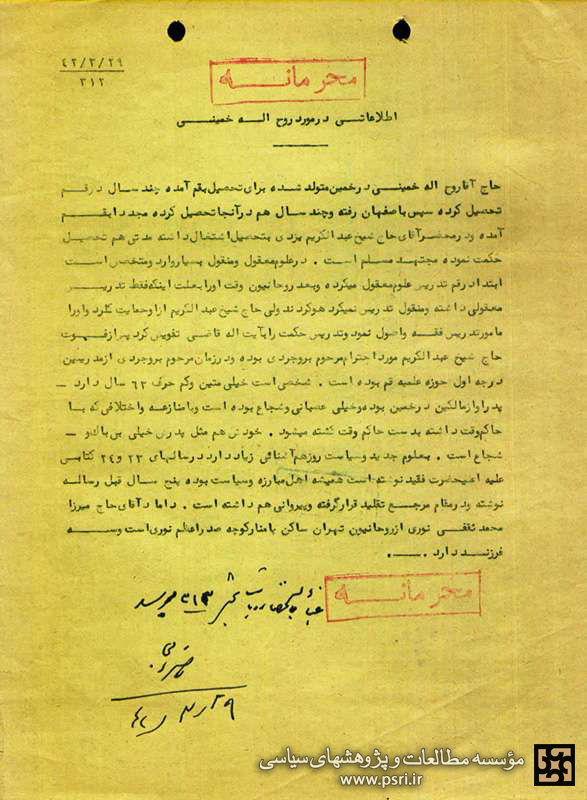 ۴۲/۳/۲۹
۳۱۲
محرمانه
اطلاعاتی در مورد روح اله خمینی
حاج آقا روح اله خمینی در خمین متولد شده برای تحصیل بقم آمده چند سال در قم
تحصیل کرده سپس باصفهان رفته و چند سال هم در آنجا تحصیل کرده مجددا بقم
آمده و در محضر آقای حاج شیخ عبد الکریم یزدی بتحصیل اشتغال داشته مدتی هم تحصیل
حکمت نموده مجتهد مسلم است . در علوم معقول و منقول بسیار وارد و متخصص است
ابتدا در قم تدریس علوم معقول میکرده و بعد روحانیون وقت او را بعلت اینکه فقط تدریس
معقولی داشته و منقول تدریس نمیکرد هو کردند ولی حاج شیخ عبد الکریم از او حمایت کرد و او را
مامور تدریس فقه و اصول نمود و تدریس حکمت را بآیت اله قاضی تفویض کرد پس از فوت
حاج شیخ عبد الکریم مورد احترام مرحوم بروجردی بوده و در زمان مرحوم بروجردی از مدرسین
درجه اول حوزه علمیه قم بوده است . شخصی است خیلی متین و کم حرف ۶۲ سال دارد –
پدر او از مالکین در خمین بوده و خیلی عصبانی و شجاع بوده است و با منازعه و اختلافی که با
حاکم وقت داشته بدست حاکم وقت کشته میشود . خودش هم مثل پدرش خیلی بی باک و –
شجاع است . بعلوم جدید و سیاست روز هم آشنائی زیاد دارد در سالهای ۲۳ و ۲۴ کتابی
علیه اعلیحضرت فقید نوشته است همیشه اهل مبارزه و سیاست بوده پنج سال قبل رساله
نوشته و در مقام مرجع تقلید قرار گرفته و پیروانی هم داشته است . داماد آقای حاج میرزا
محمد ثقفی نوری از روحانیون تهران ساکن پامنار کوچه صدر اعظم نوری است و سه
فرزند دارد . ــ .
محرمانه
۲۹ر۳ر۴۲
مؤسسه مطالعات و پژوهشهای سیاسی
www.psri.ir